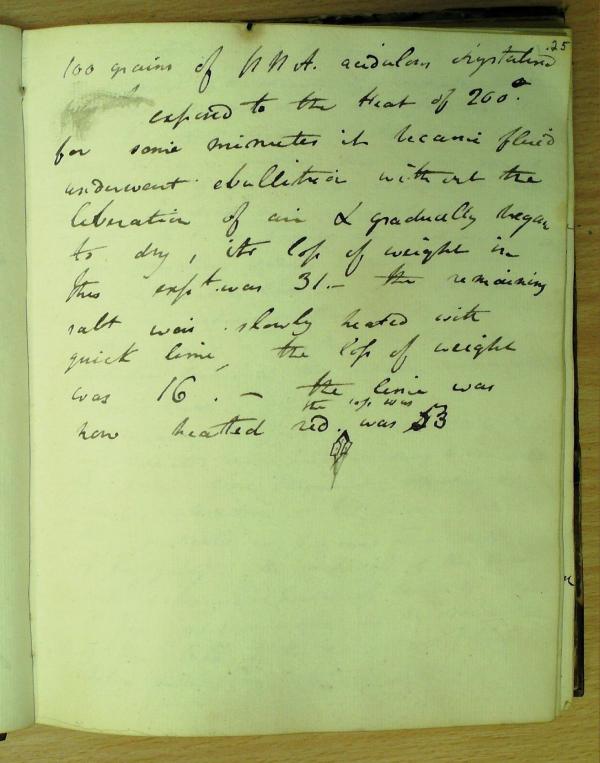 25
100 grains of NNA. acidulous crystalised
exposed to the Heat of 200°.
for some minutes it became fluid
underwent ebullition without the
liberation of air & gradually began
to dry, its loss of weight in
this expt. was 31.- the remaining
salt was slowly heated with
quick lime, the loss of weight
was 16. - the lime was
the loss was
now heated red. was 53